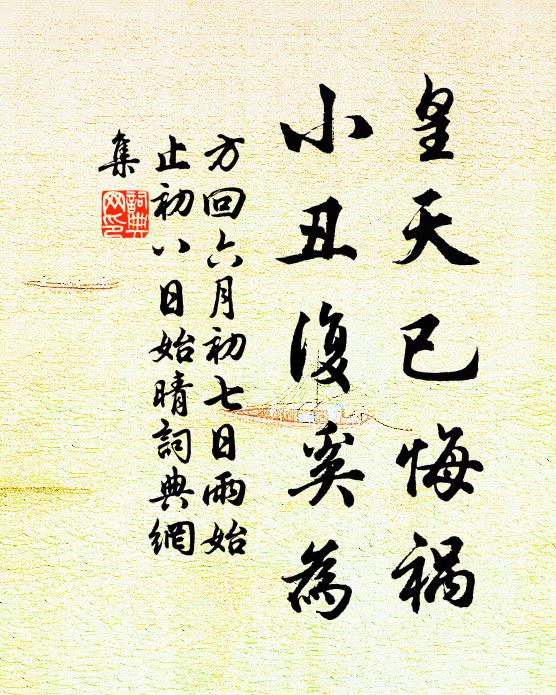 皇天已悔祸
小丑復奚為
方回六月初七日雨始
止初八日始晴詞典網
集
詞典
网印